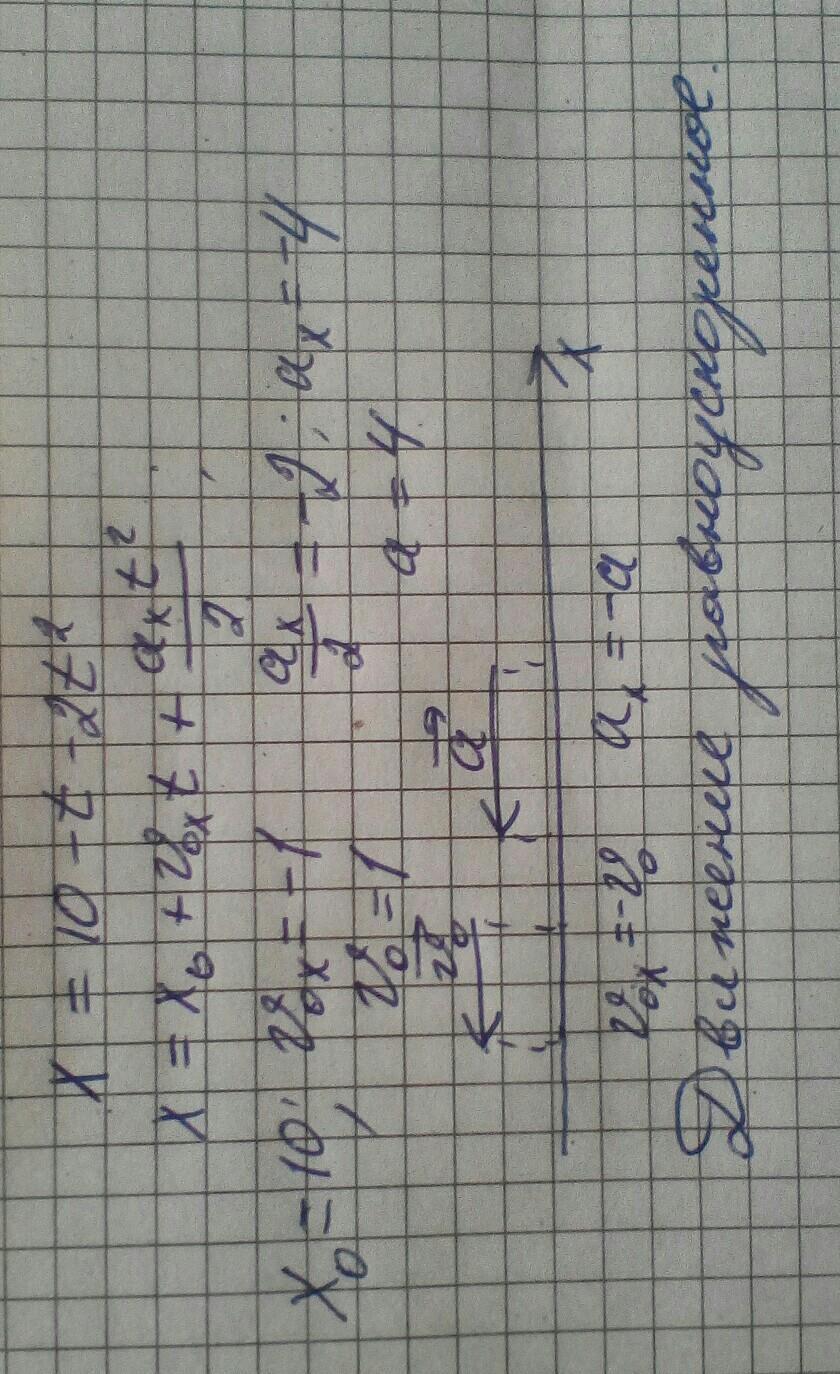 x = 10 - t - 2t²
x = x₀ + v₀ₓt + aₓt²/2
x₀ = 10; v₀ₓ = -1 aₓ/2 = -2; aₓ = -4
v₀ = 1 a = 4
v⃗₀ a⃗
x
v₀ₓ = -v₀ aₓ = -a
Движение равноускоренное.